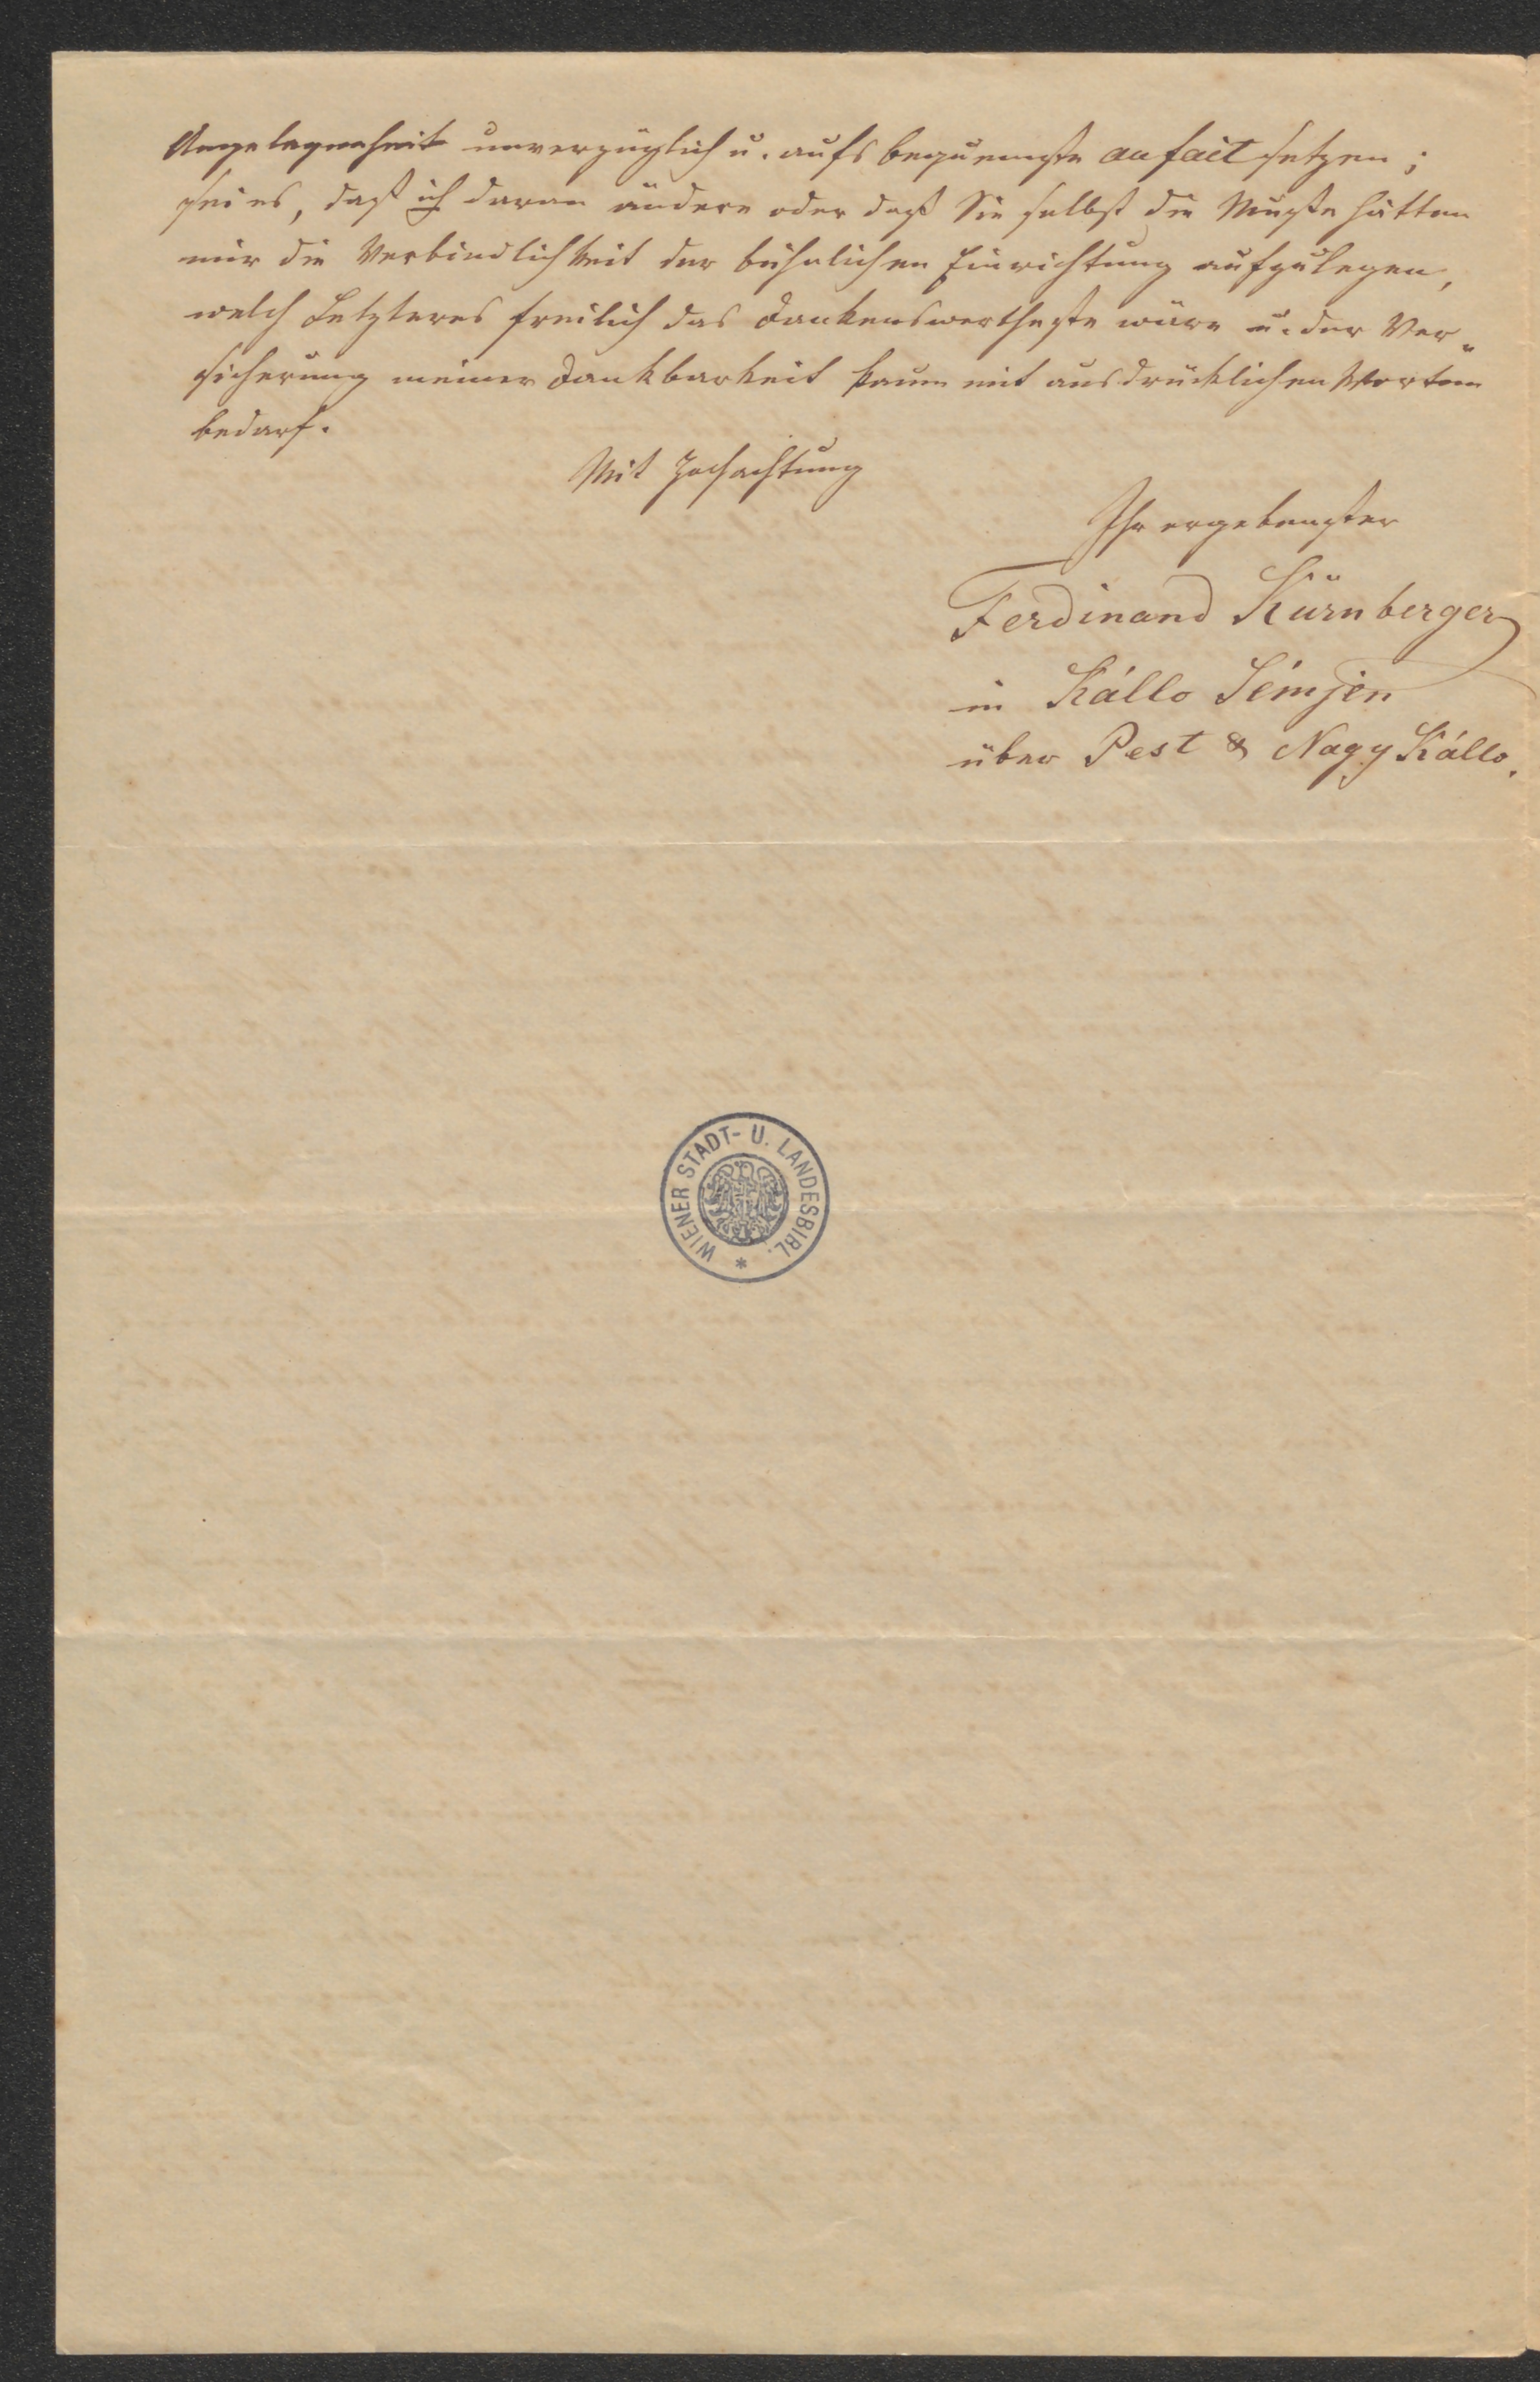 Angelegenheit unverzüglich u. aufs bequemste au fait setzen;
sei es, daß ich daran ändere oder daß Sie selbst die Muße hätten
mir die Verbindlichkeit der bühnlichen Einrichtung aufzulegen,
welch Letzteres freilich das Dankenswertheste wäre u. der Ver-
sicherung meiner Dankbarkeit kaum mit ausdrücklichen Worten
bedarf.
Mit Hochachtung
Ihr ergebenster
Ferdinand Kürnberger
in Kálló Semjén
über Pest & Nagy Kálló.
WIENER STADT- U. LANDESBIBL. *